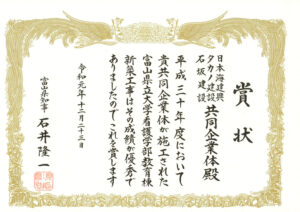 賞状
日本海建興
タカノ建設
石坂建設
共同企業体殿
平成三十年度において
貴共同企業体が施工された
富山県立大学看護学部教育棟
新築工事はその成績が優秀で
ありましたのでこれを賞します
令和元年十二月二十三日
富山県知事
石井隆一